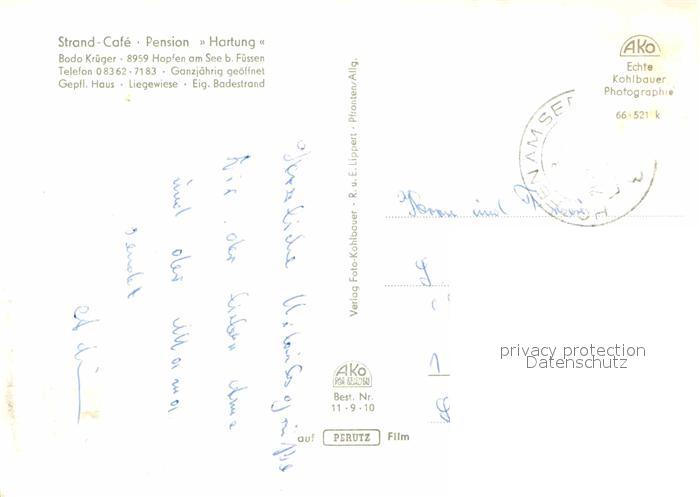 Strand-Café · Pension »Hartung«
Bodo Krüger · 8959 Hopfen am See b. Füssen
Telefon 08362-7183 · Ganzjährig geöffnet
Gepfl. Haus · Liegewiese · Eig. Badestrand
Herzliche Urlaubsgrüße
Dir, der lieben Oma
und der Mama
sendet
Verlag Foto-Kohlbauer · R. u. E. Lippert · Pfronten/Allg.
AKO
Echte
Kohlbauer
Photographie
66-521 k
HOPFEN AM SEE
Herrn und
privacy protection
Datenschutz
AKO
Best. Nr.
11·9·10
auf PERUTZ Film